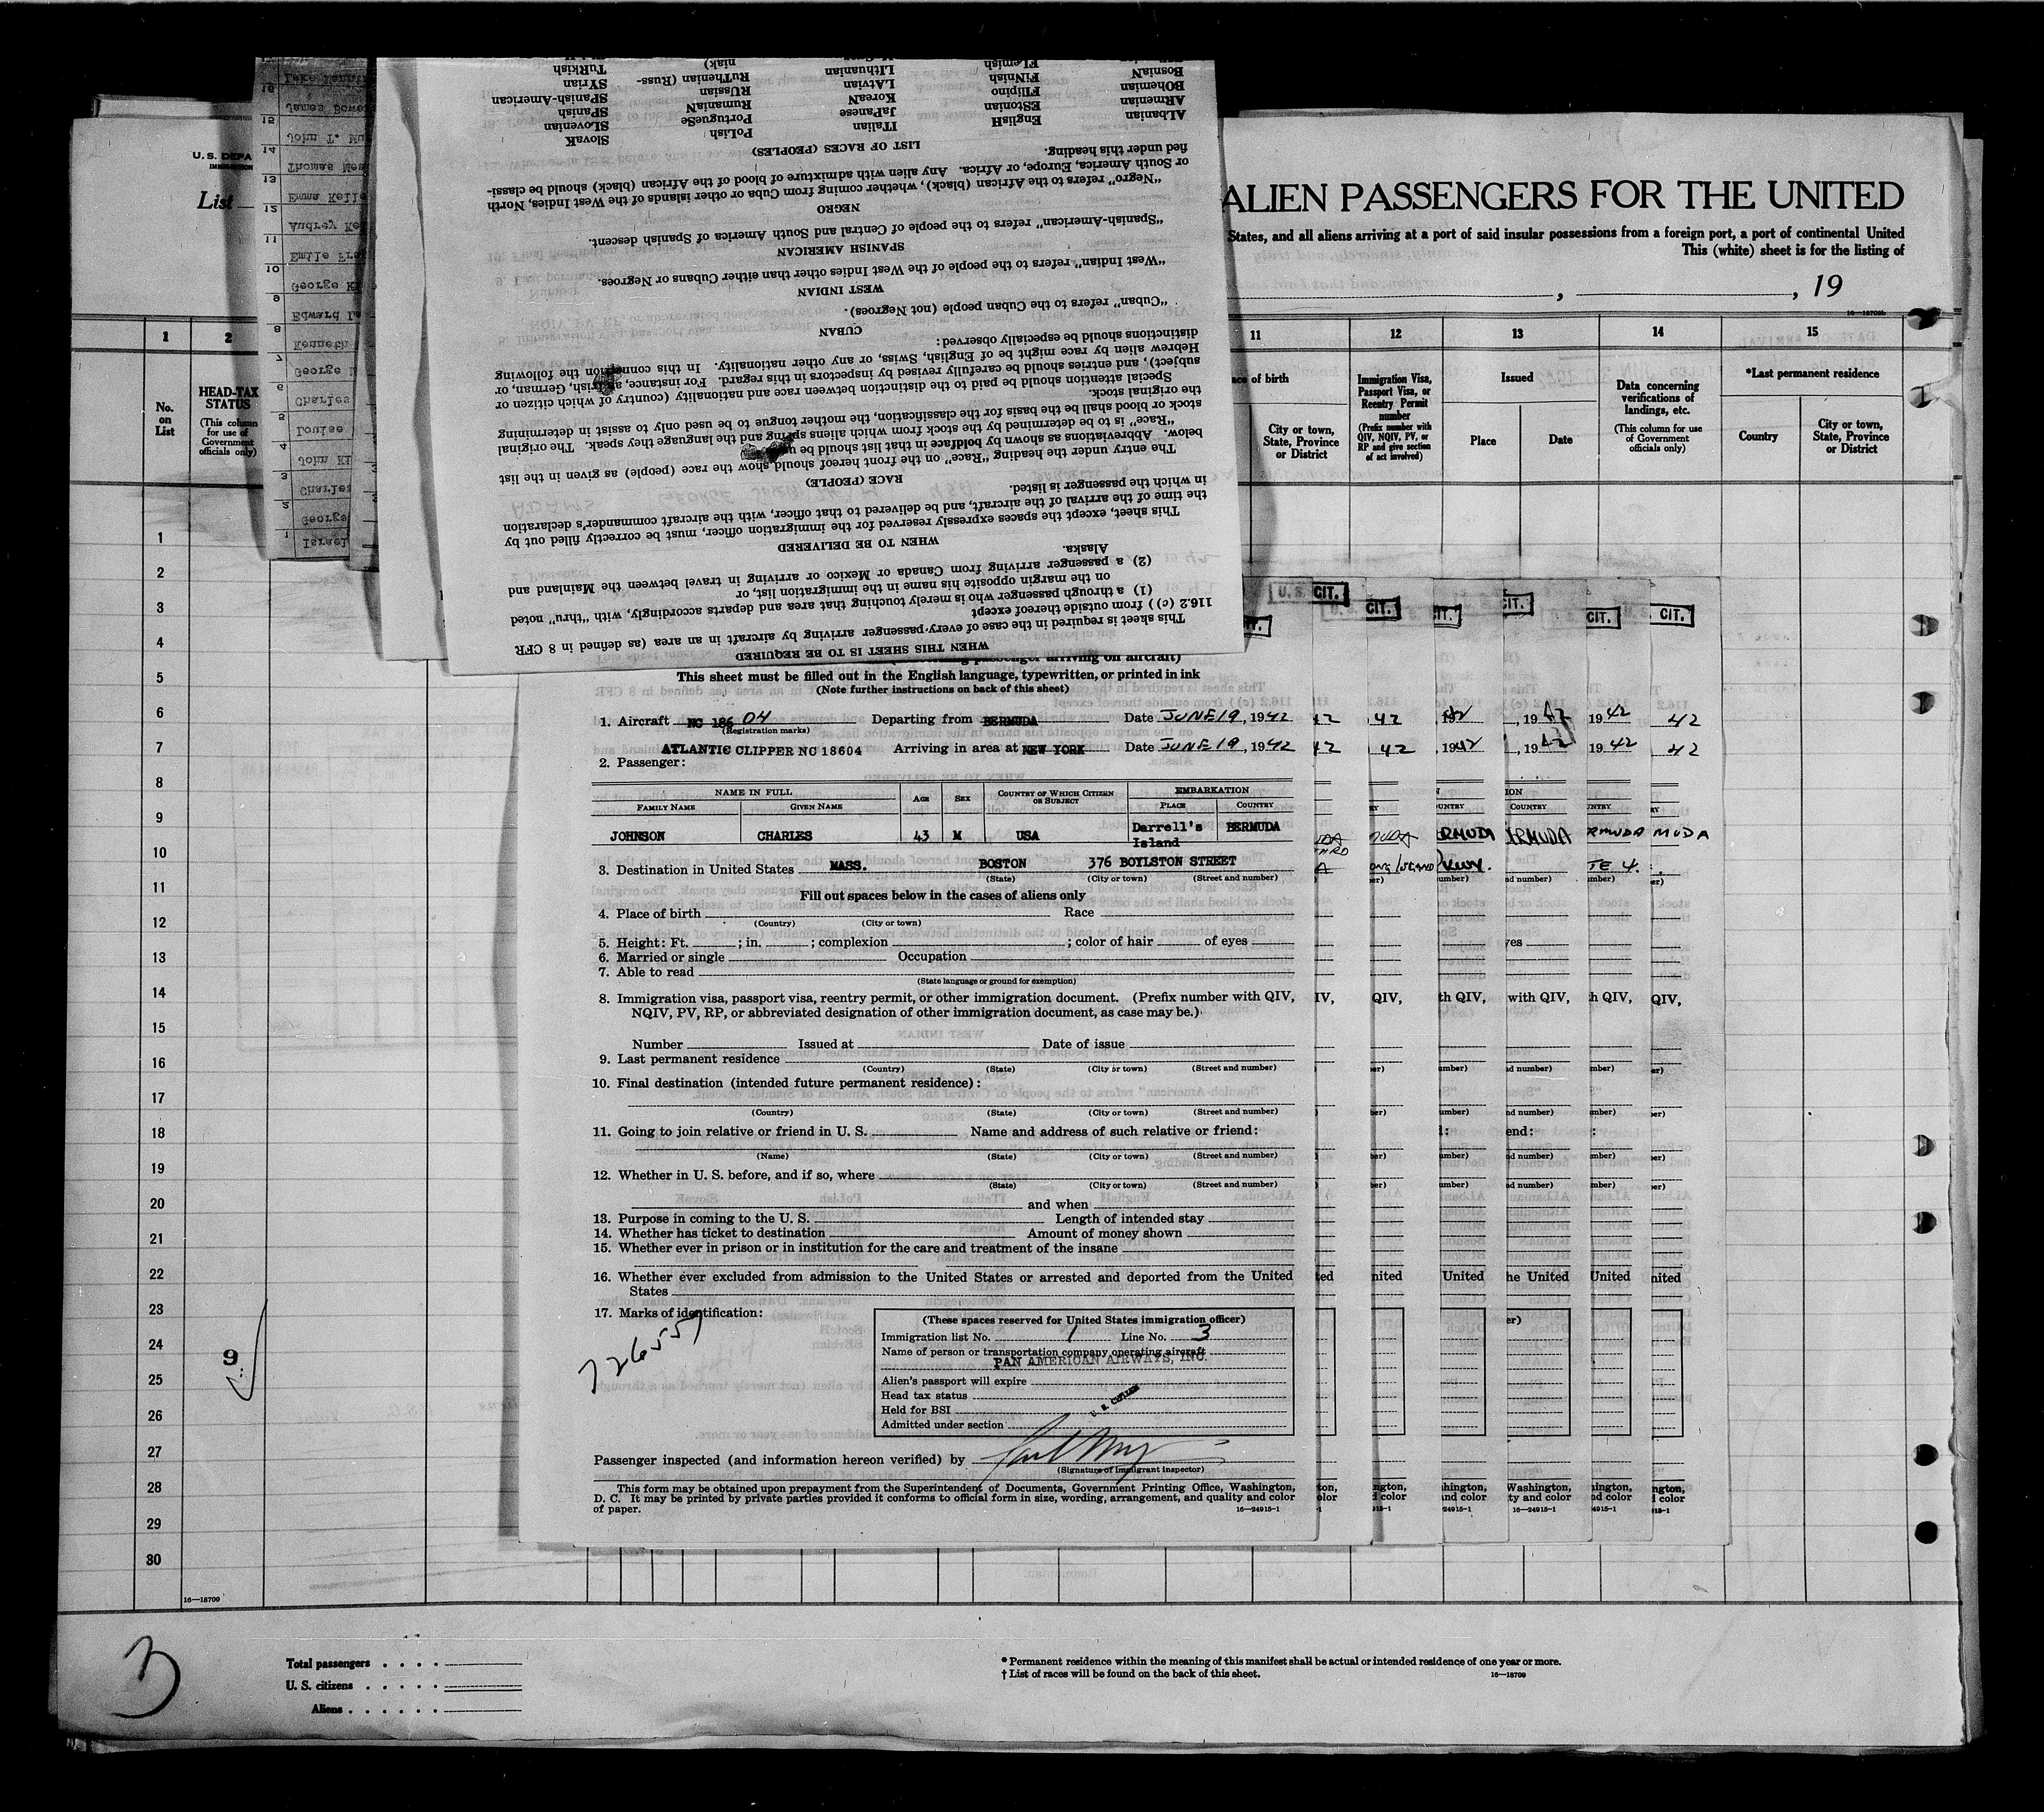 U.S. DEPA
IMMIGRATION
List
16
James Bowe
15
John T. Mu
14
Thomas Mea
13
Emma Kelle
12
Audrey Ke
11
Emile Fra
10
George Kl
9
Edward Le
8
Kenneth
7
George
6
Charles
5
Louise
4
John Kl
3
Charles
2
George
1
Israel
WHEN THIS SHEET IS TO BE REQUIRED
This sheet is required in the case of every passenger arriving by aircraft in an area (as defined in 8 CFR
116.2 (c)) from outside thereof except
(1) a through passenger who is merely touching that area and departs accordingly, with "thru" noted
on the margin opposite his name in the immigration list, or
(2) a passenger arriving from Canada or Mexico or arriving in travel between the Mainland and
Alaska.
WHEN TO BE DELIVERED
This sheet, except the spaces expressly reserved for the immigration officer, must be correctly filled out by
the time of the arrival of the aircraft, and be delivered to that officer, with the aircraft commander's declaration
in which the passenger is listed.
RACE (PEOPLE)
The entry under the heading "Race" on the front hereof should show the race (people) as given in the list
below. Abbreviations as shown by boldface in that list should be
"Race" is to be determined by the stock from which aliens spring and the language they speak. The original
stock or blood shall be the basis for the classification, the mother tongue to be used only to assist in determining
the original stock.
Special attention should be paid to the distinction between race and nationality (country of which citizen or
subject), and entries should be carefully revised by inspectors in this regard. For instance, a British, German, or
Hebrew alien by race might be of English, Swiss, or any other nationality. In this connection the following
distinctions should be especially observed:
CUBAN
"Cuban" refers to the Cuban people (not Negroes).
WEST INDIAN
"West Indian" refers to the people of the West Indies other than either Cubans or Negroes.
SPANISH AMERICAN
"Spanish-American" refers to the people of Central and South America of Spanish descent.
NEGRO
"Negro" refers to the African (black), whether coming from Cuba or other islands of the West Indies, North
or South America, Europe, or Africa. Any alien with admixture of blood of the African (black) should be classi-
fied under this heading.
LIST OF RACES (PEOPLES)
ALbanian EngliSH ITalian PoLish SlovaK
ARmenian EStonian JaPanese PortugueSe SLovenian
BOhemian FIlipino KoreaN RumaniaN SPanish
BosniaN FiNNish LAtvian RUssian SPanish-American
FLemish LIthuanian RuThenian (Russ- SYrian
niak) TuRkish
ALIEN PASSENGERS FOR THE UNITED
States, and all aliens arriving at a port of said insular possessions from a foreign port, a port of continental United
This (white) sheet is for the listing of
, , 19
16—18709b
1 2 11 12 13 14 15
No. on List
HEAD-TAX STATUS
(This column for use of Government officials only)
ce of birth
City or town, State, Province or District
Immigration Visa, Passport Visa, or Reentry Permit number
(Prefix number with QIV, NQIV, PV, or RP and give section of act involved)
Issued
Place Date
Data concerning verifications of landings, etc.
(This column for use of Government officials only)
*Last permanent residence
Country
City or town, State, Province or District
1
2
3
4
5
6
7
8
9
10
11
12
13
14
15
16
17
18
19
20
21
22
23
24
25
26
27
28
29
30
9
U. S. CIT.
CIT.
CIT.
CIT.
CIT.
CIT.
This sheet must be filled out in the English language, typewritten, or printed in ink
(Note further instructions on back of this sheet)
1. Aircraft NC 186 04 Departing from BERMUDA Date JUNE 19, 1942
(Registration marks)
ATLANTIC CLIPPER NC 18604 Arriving in area at NEW YORK Date JUNE 19, 1942
2. Passenger:
NAME IN FULL
FAMILY NAME GIVEN NAME AGE SEX COUNTRY OF WHICH CITIZEN OR SUBJECT EMBARKATION
PLACE COUNTRY
JOHNSON CHARLES 43 M USA Darrell's Island BERMUDA
3. Destination in United States MASS. BOSTON 376 BOYLSTON STREET
(State) (City or town) (Street and number)
Fill out spaces below in the cases of aliens only
4. Place of birth Race
(Country) (City or town)
5. Height: Ft. ; in. ; complexion ; color of hair of eyes
6. Married or single Occupation
7. Able to read
(State language or ground for exemption)
8. Immigration visa, passport visa, reentry permit, or other immigration document. (Prefix number with QIV,
NQIV, PV, RP, or abbreviated designation of other immigration document, as case may be.)
Number Issued at Date of issue
9. Last permanent residence
(Country) (State) (City or town) (Street and number)
10. Final destination (intended future permanent residence):
(Country) (State) (City or town) (Street and number)
11. Going to join relative or friend in U. S. Name and address of such relative or friend:
(Name) (State) (City or town) (Street and number)
12. Whether in U. S. before, and if so, where
(State) (City or town) (Street and number)
and when
13. Purpose in coming to the U. S. Length of intended stay
14. Whether has ticket to destination Amount of money shown
15. Whether ever in prison or in institution for the care and treatment of the insane
16. Whether ever excluded from admission to the United States or arrested and deported from the United
States
17. Marks of identification:
726557
(These spaces reserved for United States immigration officer)
Immigration list No. 1 Line No. 3
Name of person or transportation company operating aircraft
PAN AMERICAN AIRWAYS, INC.
Alien's passport will expire
Head tax status
Held for BSI
U. S. CITIZEN
Admitted under section
Passenger inspected (and information hereon verified) by
(Signature of immigrant inspector)
This form may be obtained upon prepayment from the Superintendent of Documents, Government Printing Office, Washington,
D. C. It may be printed by private parties provided it conforms to official form in size, wording, arrangement, and quality and color
of paper.
16—24915-1
16—18709
3
Total passengers . . . .
U. S. citizens . . . . .
Aliens . . . . . .
* Permanent residence within the meaning of this manifest shall be actual or intended residence of one year or more.
† List of races will be found on the back of this sheet.
16—18709